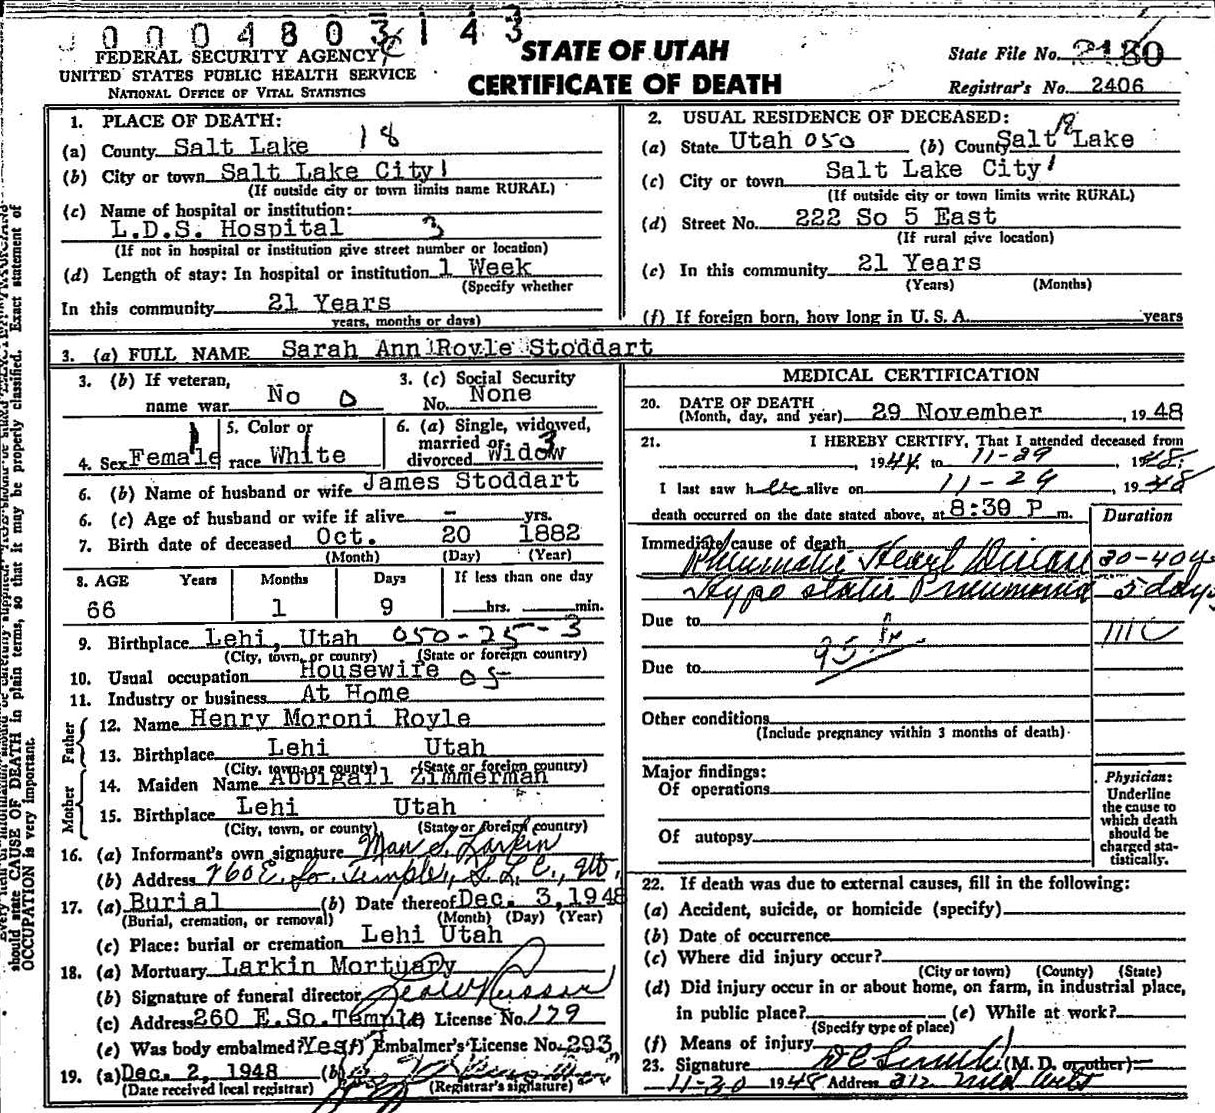 0 0 0 4 8 0 3 1 4 3
FEDERAL SECURITY AGENCY
UNITED STATES PUBLIC HEALTH SERVICE
NATIONAL OFFICE OF VITAL STATISTICS
STATE OF UTAH
CERTIFICATE OF DEATH
State File No. 2180
Registrar's No. 2406
1. PLACE OF DEATH:
(a) County Salt Lake 18
(b) City or town Salt Lake City 1
(If outside city or town limits name RURAL)
(c) Name of hospital or institution:
L.D.S. Hospital 3
(If not in hospital or institution give street number or location)
(d) Length of stay: In hospital or institution 1 Week
(Specify whether
In this community 21 Years
years, months or days)
2. USUAL RESIDENCE OF DECEASED:
(a) State Utah 050 (b) County Salt Lake 18
(c) City or town Salt Lake City 1
(If outside city or town limits write RURAL)
(d) Street No. 222 So 5 East
(If rural give location)
(e) In this community 21 Years
(Years) (Months)
(f) If foreign born, how long in U. S. A. years
3. (a) FULL NAME Sarah Ann Royle Stoddart
3. (b) If veteran,
name war No 0
3. (c) Social Security
No. None
4. Sex Female 1
5. Color or
race White 1
6. (a) Single, widowed,
married or
divorced Widow 3
6. (b) Name of husband or wife James Stoddart
6. (c) Age of husband or wife if alive - yrs.
7. Birth date of deceased Oct. 20 1882
(Month) (Day) (Year)
8. AGE Years Months Days If less than one day
66 1 9 hrs. min.
9. Birthplace Lehi, Utah 050-25-3
(City, town, or county) (State or foreign country)
10. Usual occupation Housewife 05
11. Industry or business At Home
Father
12. Name Henry Moroni Royle
13. Birthplace Lehi Utah
(City, town or county) (State or foreign country)
Mother
14. Maiden Name Abbigail Zimmerman
15. Birthplace Lehi Utah
(City, town, or county) (State or foreign country)
16. (a) Informant's own signature Larkin
(b) Address 260 E. So. Temple, S.L.C., Ut.
17. (a) Burial (b) Date thereof Dec. 3, 1948
(Burial, cremation, or removal) (Month) (Day) (Year)
(c) Place: burial or cremation Lehi Utah
18. (a) Mortuary Larkin Mortuary
(b) Signature of funeral director
(c) Address 260 E.So.Temple (d) License No. 179
(e) Was body embalmed? Yes (f) Embalmer's License No. 293
19. (a) Dec. 2, 1948 (b)
(Date received local registrar) (Registrar's signature)
MEDICAL CERTIFICATION
20. DATE OF DEATH
(Month, day, and year) 29 November, 1948
21. I HEREBY CERTIFY, That I attended deceased from
, 1944 to 11-29, 1948.
I last saw her alive on 11-29, 1948
death occurred on the date stated above, at 8:30 P m.
Duration
Immediate cause of death
Rheumatic Heart Disease 30-40 yr
Hypostatic Pneumonia 5 days
Due to
95
Due to
Other conditions
(Include pregnancy within 3 months of death)
Major findings:
Of operations
Of autopsy
Physician:
Underline
the cause to
which death
should be
charged sta-
tistically.
22. If death was due to external causes, fill in the following:
(a) Accident, suicide, or homicide (specify)
(b) Date of occurrence
(c) Where did injury occur?
(City or town) (County) (State)
(d) Did injury occur in or about home, on farm, in industrial place,
in public place? (e) While at work?
(Specify type of place)
(f) Means of injury
23. Signature (M. D. or other)
11-30 1948 Address 212 Med Arts
should state CAUSE OF DEATH in plain terms, so that it may be properly classified. Exact statement of
OCCUPATION is very important.